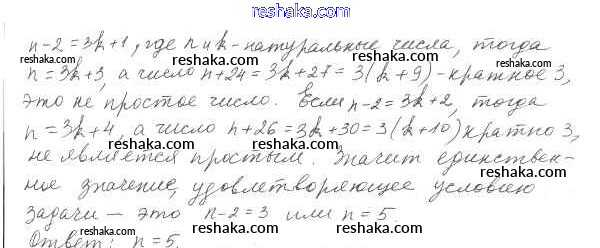 reshaka.com
n-2=3k+1, где n и k - натуральные числа, тогда
reshaka.com reshaka.com reshaka.com
n=3k+3, а число n+24=3k+27=3(k+9) - кратное 3,
это не простое число. Если n-2=3k+2, тогда
reshaka.com reshaka.com reshaka.com
n=3k+4, а число n+26=3k+30=3(k+10) кратно 3,
не является простым. Значит единствен-
reshaka.com reshaka.com reshaka.com
ное значение, удовлетворяющее условию
задачи - это n-2=3 или n=5.
reshaka.com reshaka.com reshaka.com
Ответ: n=5.
reshaka.com